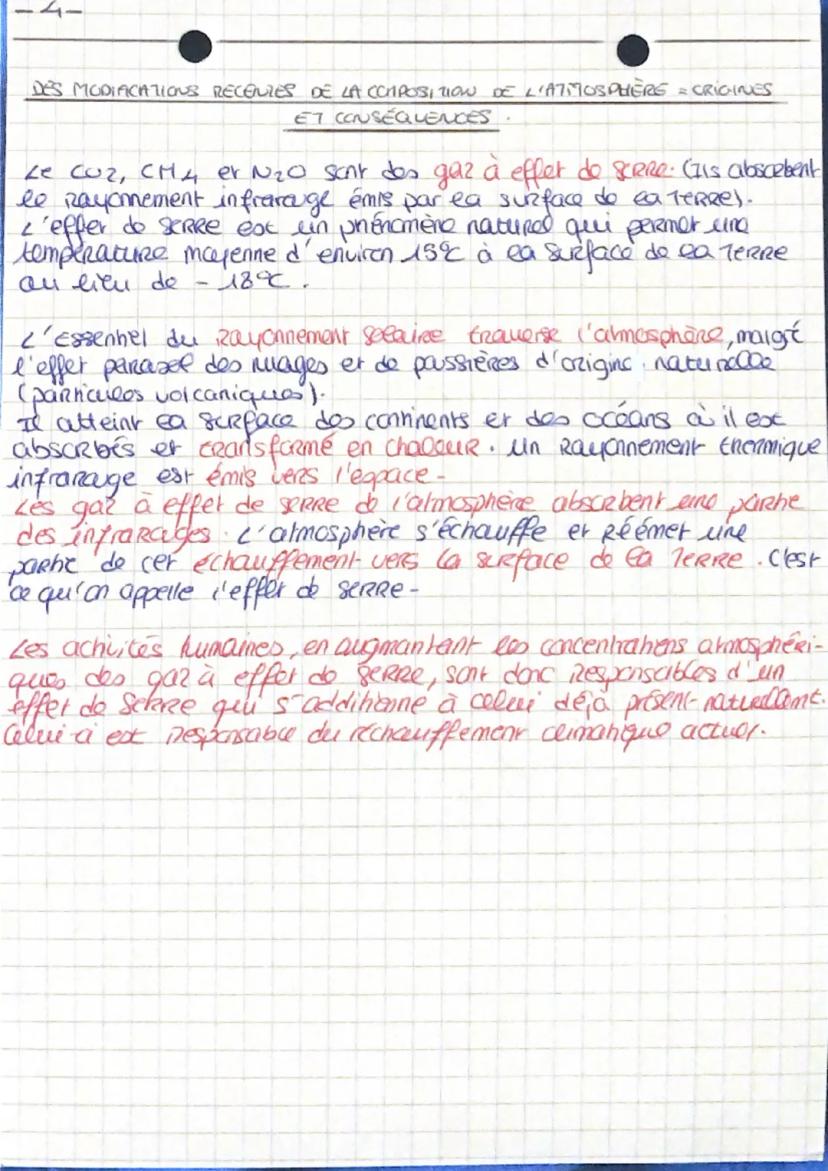 -4-
DES MODIFICATIONS RECENTES DE LA COMPOSITION DE L'ATMOSPHÈRE = ORIGINES
ET CONSÉQUENCES.
Le CO2, CH4 et N2O sont des gaz à effet de serre. (Ils absorbent
le rayonnement infrarouge émis par la surface de la Terre).
L'effet de serre est un phénomène naturel qui permet une
température moyenne d'environ 15°C à la surface de la Terre
au lieu de -18°C.
L'essentiel du rayonnement solaire traverse l'atmosphère, malgré
l'effet parasol des nuages et de poussières d'origine naturelle
(particules volcaniques).
Il atteint la surface des continents et des océans où il est
absorbés et transformé en chaleur. Un rayonnement thermique
infrarouge est émis vers l'espace.
Les gaz à effet de serre de l'atmosphère absorbent une partie
des infrarouges. L'atmosphère s'échauffe et réémet une
partie de cet échauffement vers la surface de la Terre. C'est
ce qu'on appelle l'effet de serre.
Les activités humaines, en augmentant les concentrations atmosphéri-
ques des gaz à effet de serre, sont donc responsables d'un
effet de serre qui s'additionne à celui déjà présent naturellemt.
Celui-ci est responsable du réchauffement climatique actuel.